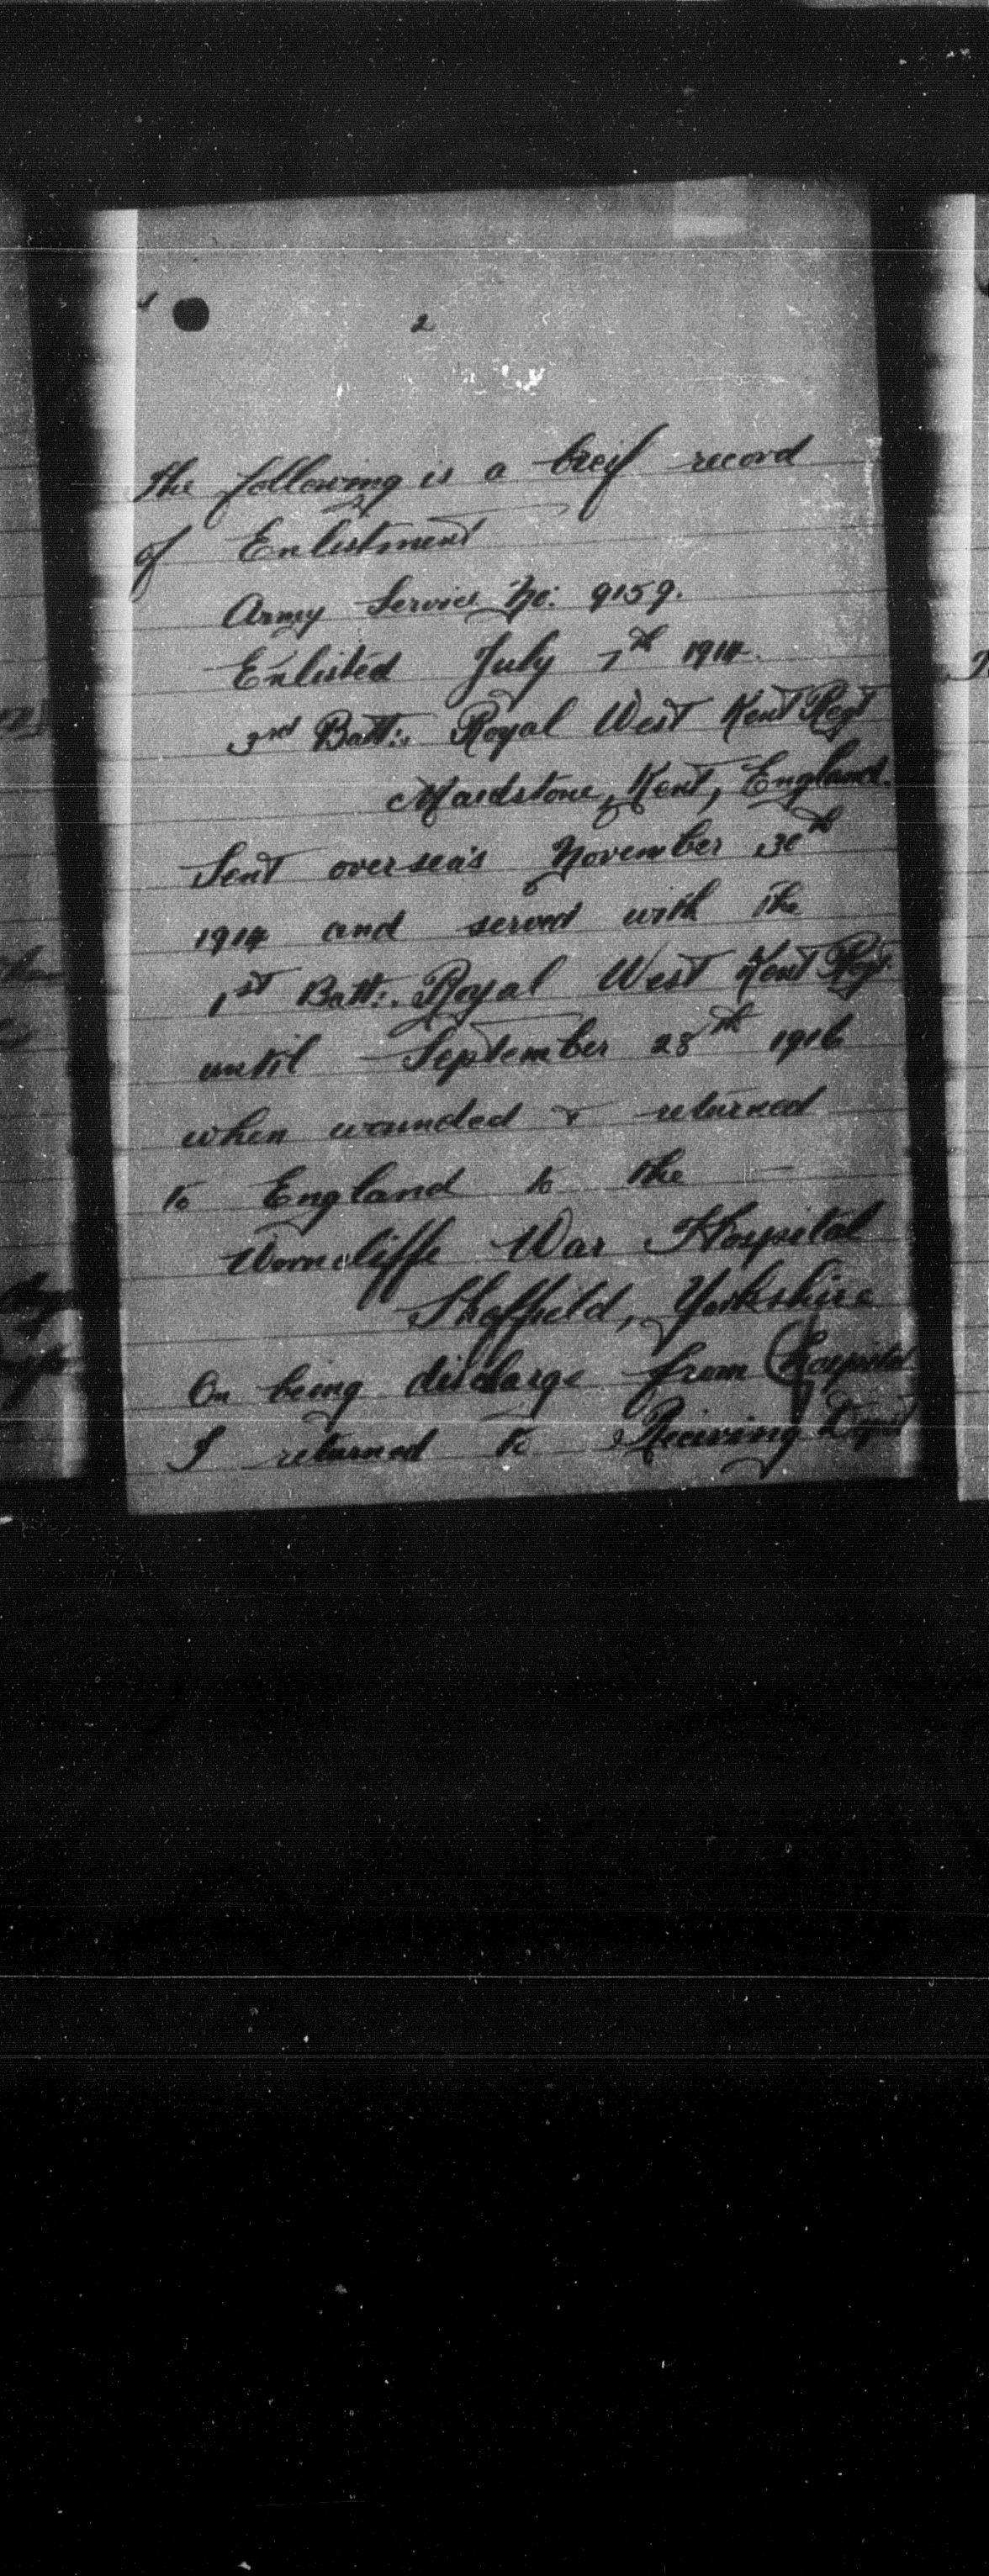 2
The following is a breif record
of Enlistment
Army Service No: 9159.
Enlisted July 7th 1914.
3rd Batt:. Royal West Kent Regt
Maidstone, Kent, England.
Sent oversea's November 30th
1914 and served with the
1st Batt:. Royal West Kent Regt.
until September 28th 1916
when wounded & returned
to England to the
Worncliffe War Hospital
Sheffield, Yorkshire
On being discharge from Hospital
I returned to Reciving Depot